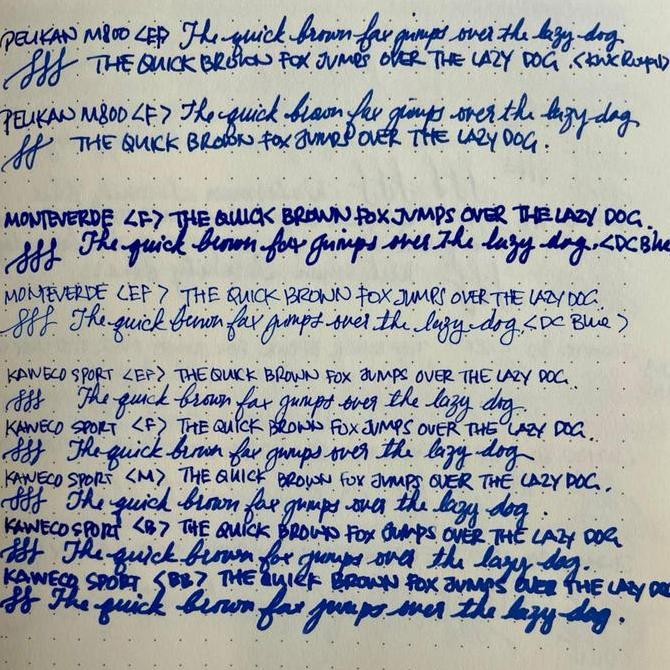 PELIKAN M800 <EF> The quick brown fox jumps over the lazy dog
fff THE QUICK BROWN FOX JUMPS OVER THE LAZY DOG.
PELIKAN M800 <F> The quick brown fox jumps over the lazy dog
ff THE QUICK BROWN FOX JUMPS OVER THE LAZY DOG.
MONTEVERDE <F> THE QUICK BROWN FOX JUMPS OVER THE LAZY DOG.
fff The quick brown fox jumps over the lazy dog. <DC Blue
MONTEVERDE <EF> THE QUICK BROWN FOX JUMPS OVER THE LAZY DOG.
fff The quick brown fox jumps over the lazy dog <DC Blue>
KAWECO SPORT <EF> THE QUICK BROWN FOX JUMPS OVER THE LAZY DOG.
fff The quick brown fox jumps over the lazy dog
KAWECO SPORT <F> THE QUICK BROWN FOX JUMPS OVER THE LAZY DOG.
fff The quick brown fox jumps over the lazy dog
KAWECO SPORT <M> THE QUICK BROWN FOX JUMPS OVER THE LAZY DOG.
fff The quick brown fox jumps over the lazy dog.
KAWECO SPORT <B> THE QUICK BROWN FOX JUMPS OVER THE LAZY DOG
fff The quick brown fox jumps over the lazy dog.
KAWECO SPORT <BB> THE QUICK BROWN FOX JUMPS OVER THE LAZY DOG
ff The quick brown fox jumps over the lazy dog.